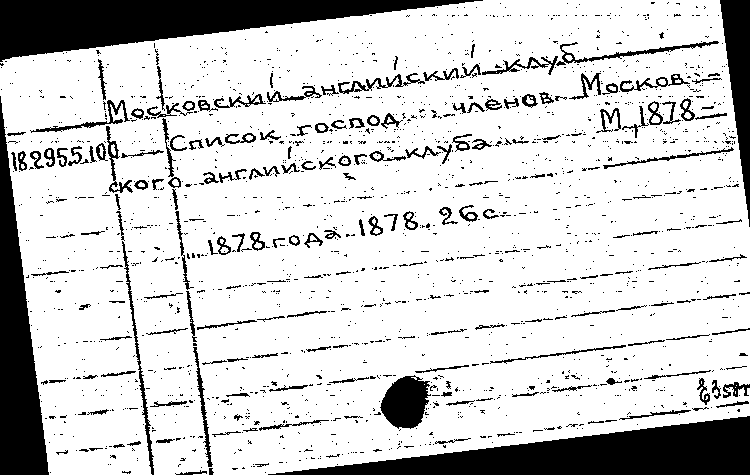 Московский английский клуб
18.295.5.100. Список господ членов Москов-
ского английского клуба М, 1878-
... 1878 года 1878. 26 с.